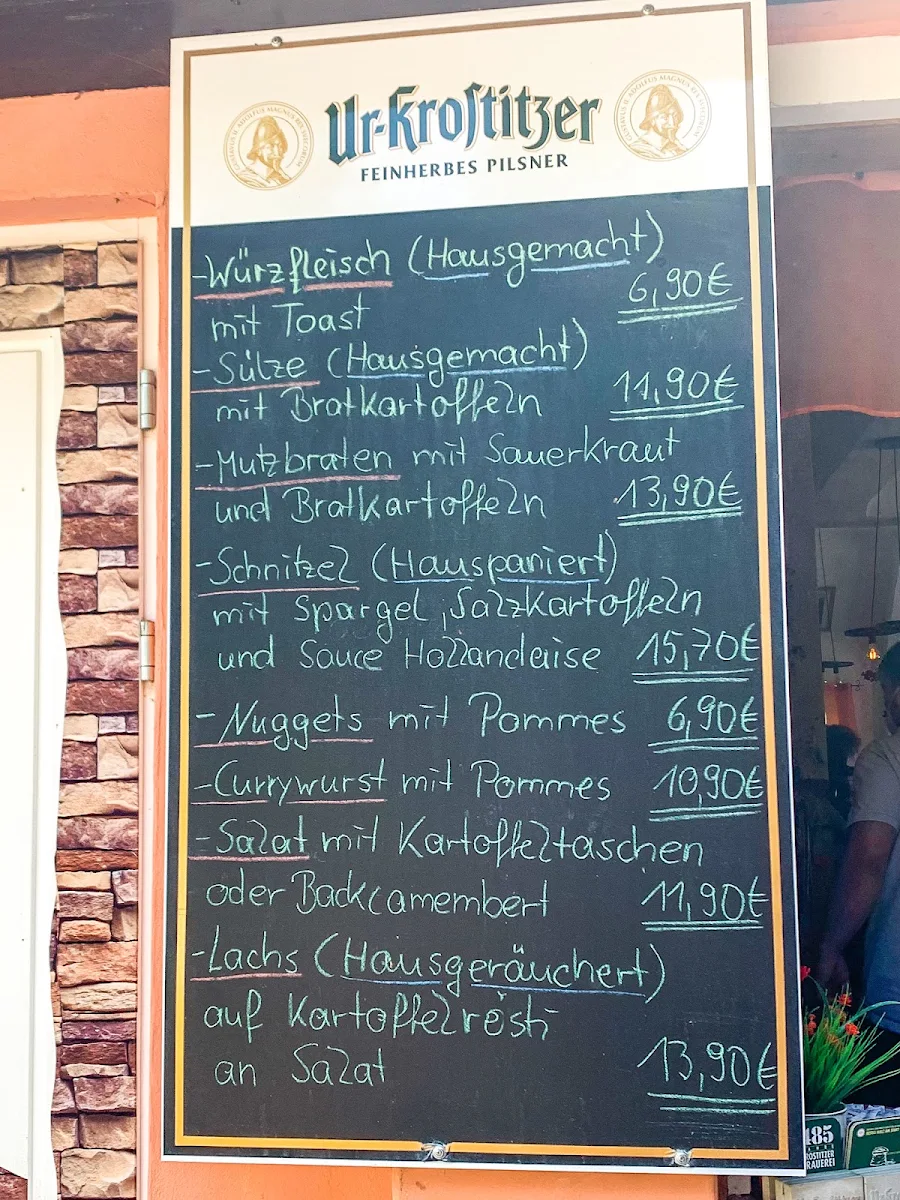 Ur-Krostitzer
FEINHERBES PILSNER
-Würzfleisch (Hausgemacht)
6,90€
mit Toast
-Sülze (Hausgemacht)
mit Bratkartoffeln 11,90€
-Mutzbraten mit Sauerkraut
und Bratkartoffeln 13,90€
-Schnitzel (Hauspaniert)
mit Spargel, Salzkartoffeln
und Sauce Hollandaise 15,70€
-Nuggets mit Pommes 6,90€
-Currywurst mit Pommes 10,90€
-Salat mit Kartoffeltaschen
oder Backcamembert 11,90€
-Lachs (Hausgeräuchert)
auf Kartoffelrösti
an Salat 13,90€
485